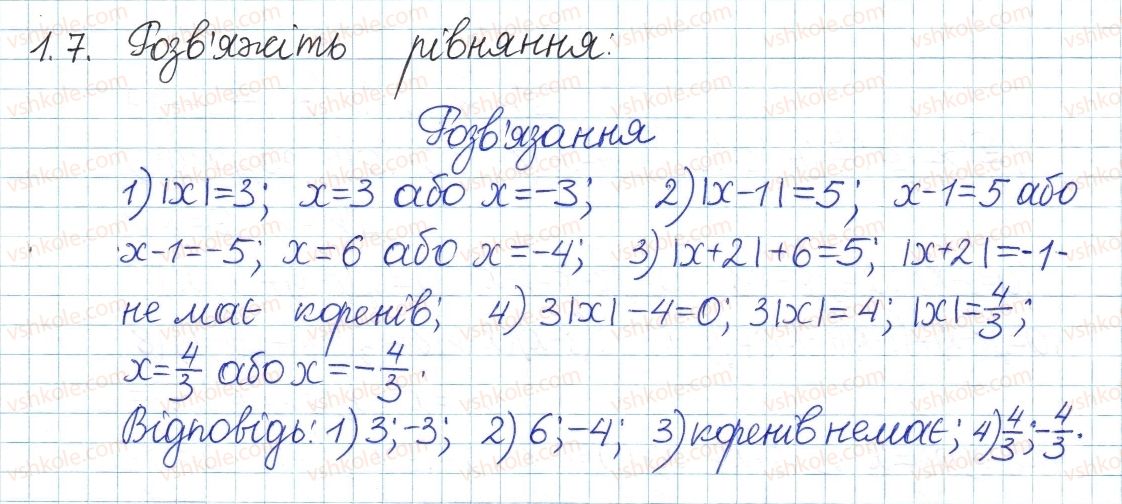 1.7. Розв'яжіть рівняння:
Розв'язання
1) |x|=3; x=3 або x=-3; 2) |x-1|=5; x-1=5 або
x-1=-5; x=6 або x=-4; 3) |x+2|+6=5; |x+2|=-1-
не має коренів; 4) 3|x|-4=0; 3|x|=4; |x|=4/3;
x=4/3 або x=-4/3.
Відповідь: 1) 3;-3; 2) 6;-4; 3) коренів немає; 4) 4/3;-4/3.
vshkole.com